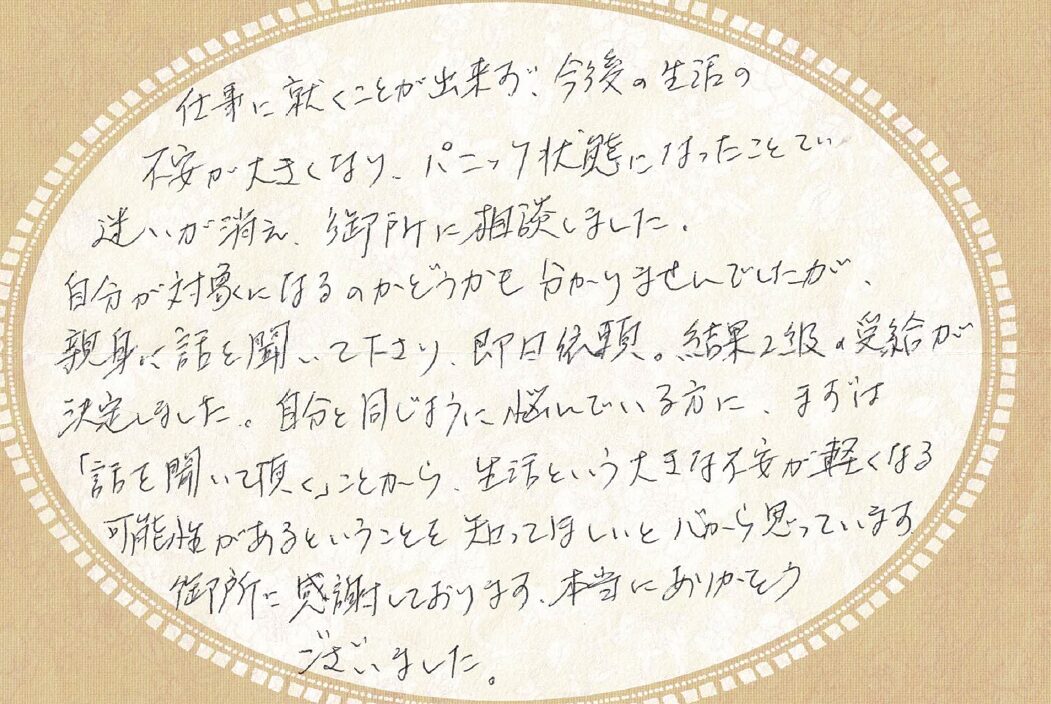 仕事に就くことが出来ず、今後の生活の
不安が大きくなり、パニック状態になったことで
迷いが消え、御所に相談しました。
自分が対象になるのかどうかも分かりませんでしたが、
親身に話を聞いて下さり、即日依頼。結果2級の受給が
決定しました。自分と同じように悩んでいる方に、まずは
「話を聞いて頂く」ことから、生活という大きな不安が軽くなる
可能性があるということを知ってほしいと心から思っています。
御所に感謝しております。本当にありがとう
ございました。